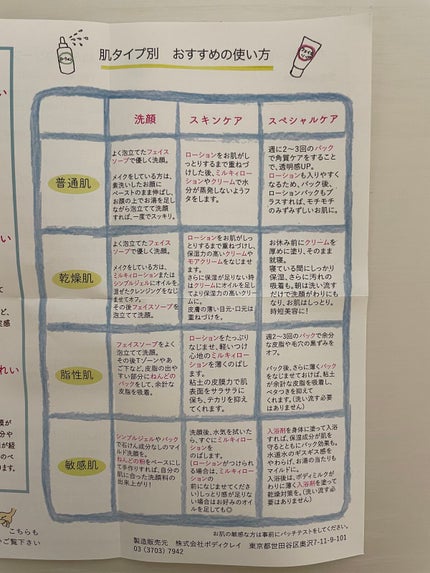 肌タイプ別 おすすめの使い方
洗顔
スキンケア
スペシャルケア
普通肌
よく泡立てたフェイス
ソープで優しく洗顔。
メイクをしている方は、
素洗いしたお顔に
ペーストのまま伸ばし、
お顔の上でお湯を足し
ながら泡立てて洗顔
すれば、一度でスッキリ。
ローションをお肌がし
っとりするまで重ねづ
けした後、ミルキィロー
ションやクリームで水
分が蒸発しないようフ
タをします。
週に2〜3回のパック
で角質ケアをすること
で、透明感UP。
ローションも入りやすく
なるため、パック後、
ローションパックもプ
ラスすれば、モチモチ
のみずみずしいお肌に。
乾燥肌
よく泡立てたフェイス
ソープで優しく洗顔。
メイクをしている方は、
ミルキィローションまたは
シンプルジェルにオイルを
混ぜたクレンジングをなじ
ませてオフ。
その後フェイスソープを泡
立てて洗顔。
ローションをお肌がし
っとりするまで重ねづけし、
保湿力の高いクリームや
モアクリームをなじませ
ます。
さらに保湿が足りない時
はクリームにオイルを足
してより保湿力の高いクリー
ムに。
皮膚の薄い目元・口元は
重ねづけを。
お休み前にクリームを
厚めに塗り、そのまま
就寝。
寝ている間にしっかり
保湿、さらに汚れの
吸着も。朝は洗い流す
だけで洗顔がわりにも
なり、お肌はしっとり。
時短美容に！
脂性肌
フェイスソープをよく
泡立てて洗顔。
その後Tゾーンやあ
ご下など、皮脂の出や
すい部分にねんどの
パックをして、余分な
皮脂を吸着。
ローションをたっぷり
なじませ、軽いつけ
心地のミルキィロー
ションを薄くのばし
ます。
粘土の皮膜力で肌
表面をサラサラに
保ち、テカリを抑え
てくれます。
週2〜3回のパックで余分
な皮脂や毛穴の黒ずみを
オフ。
パック後、さらに薄くパック
をなじませておけば、粘土
が余計な皮脂を吸着し、
ベタつきを抑えて
くれます。(洗い流す必要
はありません)
敏感肌
シンプルジェルやパック
で石けん成分なしのマ
イルド洗顔を。
ねんどの粉をベースにし
て手作りすれば、自分の
肌に合った洗顔料の
出来上がり！
洗顔後、水気を拭いた
ら、すぐにミルキィロー
ション
をのばします。
(ローションがつけられ
る場合は、ミルキィロー
ションの
前になじませてくださ
い)しっとり感が足りな
い場合はお好みのオイ
ルを足しても◎
入浴剤を身体に塗って入浴
すれば、保湿成分が肌を守
るとともにパック効果も。
水道水のギスギス感を
やわらげ、お湯の当たりも
マイルドに。
入浴後は、ボディミルクが
わりに薄く入浴剤を塗って
乾燥対策を。(洗い流す必要
はありません)
お肌の敏感な方は事前にパッチテストをしてください。
製造販売元 株式会社ボディクレイ 東京都世田谷区奥沢7-11-9-101
03 (3703) 7942
こちらも
ご覧下さい